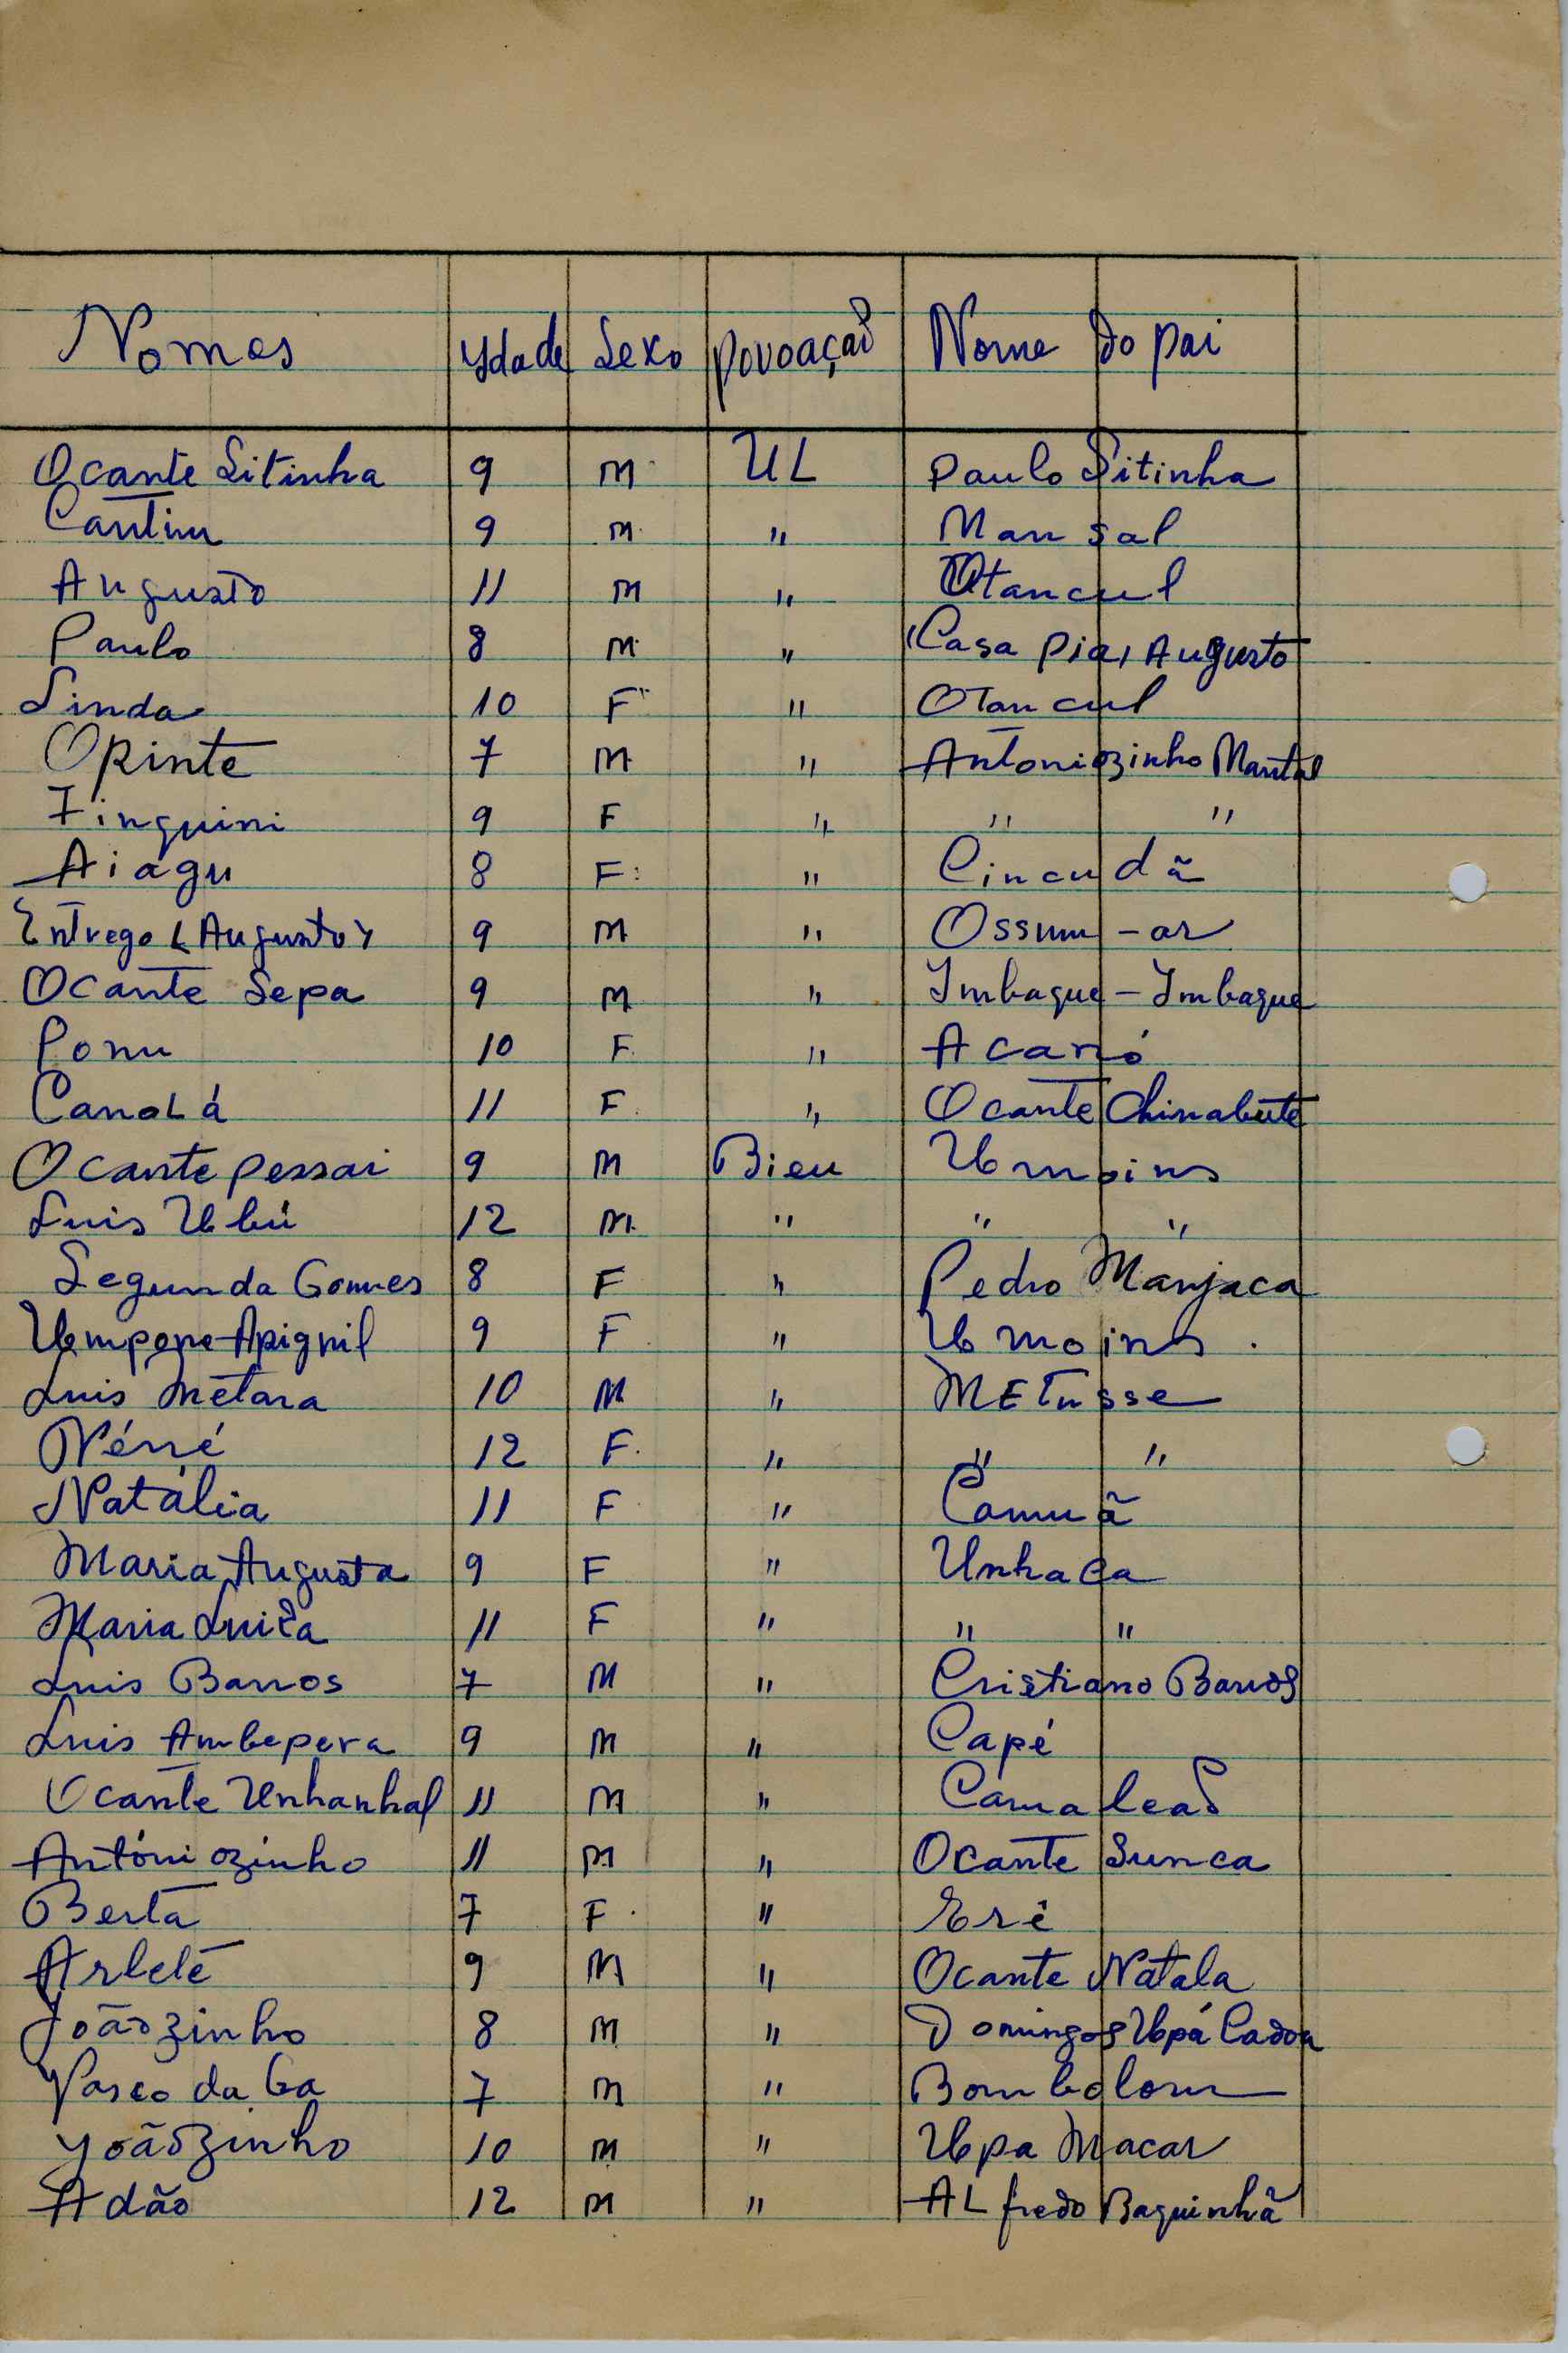 Nomes Ydade Sexo povoação Nome do pai
Ocante Sitinha 9 M UL Paulo Sitinha
Cantim 9 M " Man sal
Augusto 11 M " Otancul
Paulo 8 M " (Casa Pia, Augusto
Linda 10 F " Otancul
Opinte 7 M " Antoniozinho Mantal
Finguini 9 F " " "
Aiágu 8 F " Cincudã
Entrego (Augusto) 9 M " Ossum-ar
Ocante Sepa 9 M " Imbaque-Imbaque
Ponu 10 F " Acanó
Canolá 11 F " Ocante Chinabute
Ocante pessai 9 M Bieu Umoins
Luis Ubú 12 M " " "
Segunda Gomes 8 F " Pedro Manjaca
Umpone Apignil 9 F " Umoins.
Luis Metara 10 M " METusse
Néné 12 F " " "
Natália 11 F " Camuã
Maria Augusta 9 F " Unhaca
Maria Luiza 11 F " " "
Luis Barros 7 M " Cristiano Barros
Luis Ambepera 9 M " Capé
Ocante Unhanhal 11 M " Camaleão
Antóniozinho 11 M " Ocante Sunca
Berta 7 F " Eré
Arlete 9 M " Ocante Natala
Joãozinho 8 M " Domingos Upá Cadoa
Vasco da Ga 7 M " Bombolom
Joãozinho 10 M " Upa Macar
Adão 12 M " ALfredo Baquinhã